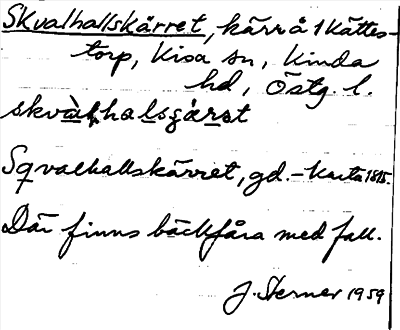 Skvalhallskärret, kärr å 1 Kättes-
torp, Kisa sn, Kinda
hd, Östg. l.
skvàlhalsçärət
Sqvalhallskärret, gd. – Karta 1815.
Där finns bäckfåra med fall.
J. Sterner 1959